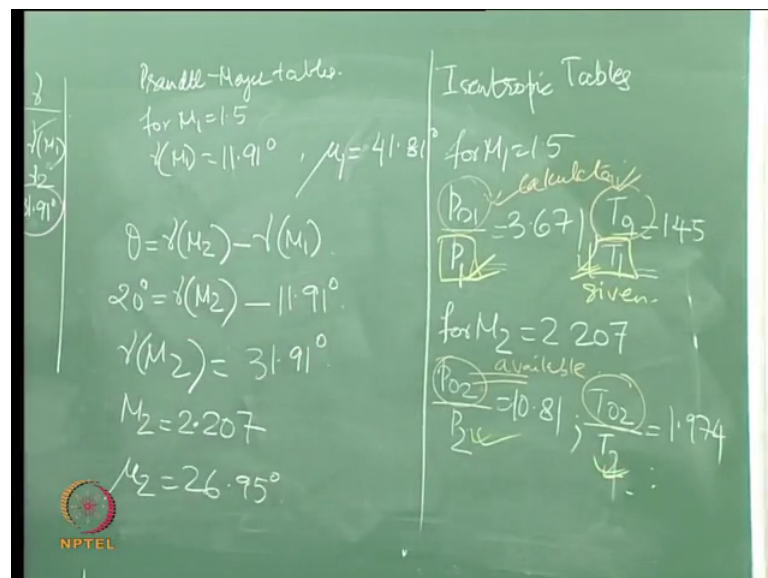 γ
γ(M1)
+2
31.91°
Prandtl-Mayer tables.
for M1=1.5
γ(M1)=11.91° , μ1=41.81°
θ=γ(M2)-γ(M1)
20°=γ(M2)-11.91°
γ(M2)=31.91°
M2=2.207
μ2=26.95°
Isentropic Tables
for M1=1.5
calculator
P01/P1=3.67) T0/T1=1.45
given.
for M2=2.207
available
P02/P2=10.81; T02/T2=1.974
NPTEL